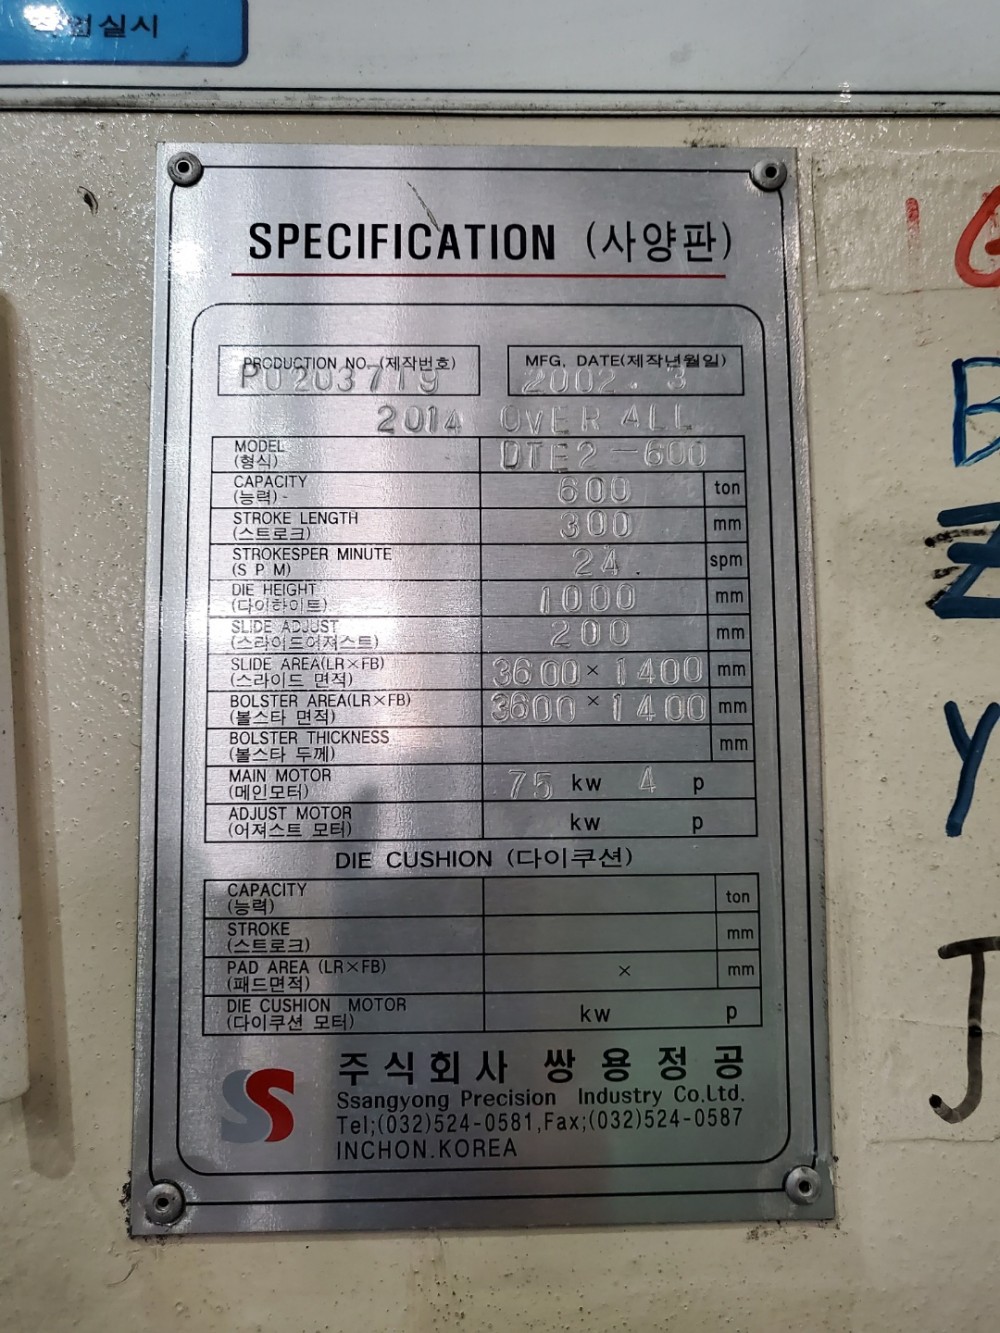 업실시
SPECIFICATION (사양판)
PRODUCTION NO. (제작번호) MFG, DATE(제작년월일)
P0203719 2002.3
2014 OVER ALL
MODEL DTE2-600
(형식)
CAPACITY 600 ton
(능력)
STROKE LENGTH 300 mm
(스트로크)
STROKESPER MINUTE 24 spm
(S P M)
DIE HEIGHT 1000 mm
(다이하이트)
SLIDE ADJUST 200 mm
(스라이드어져스트)
SLIDE AREA(LR×FB) 3600 × 1400 mm
(스라이드 면적)
BOLSTER AREA(LR×FB) 3600 × 1400 mm
(볼스타 면적)
BOLSTER THICKNESS mm
(볼스타 두께)
MAIN MOTOR 75 kw 4 p
(메인모터)
ADJUST MOTOR kw p
(어져스트 모터)
DIE CUSHION (다이쿠션)
CAPACITY ton
(능력)
STROKE mm
(스트로크)
PAD AREA (LR×FB) × mm
(패드면적)
DIE CUSHION MOTOR kw p
(다이쿠션 모터)
SS
주식회사 쌍용정공
Ssangyong Precision Industry Co.Ltd.
Tel;(032)524-0581,Fax;(032)524-0587
INCHON.KOREA
B
Y
J